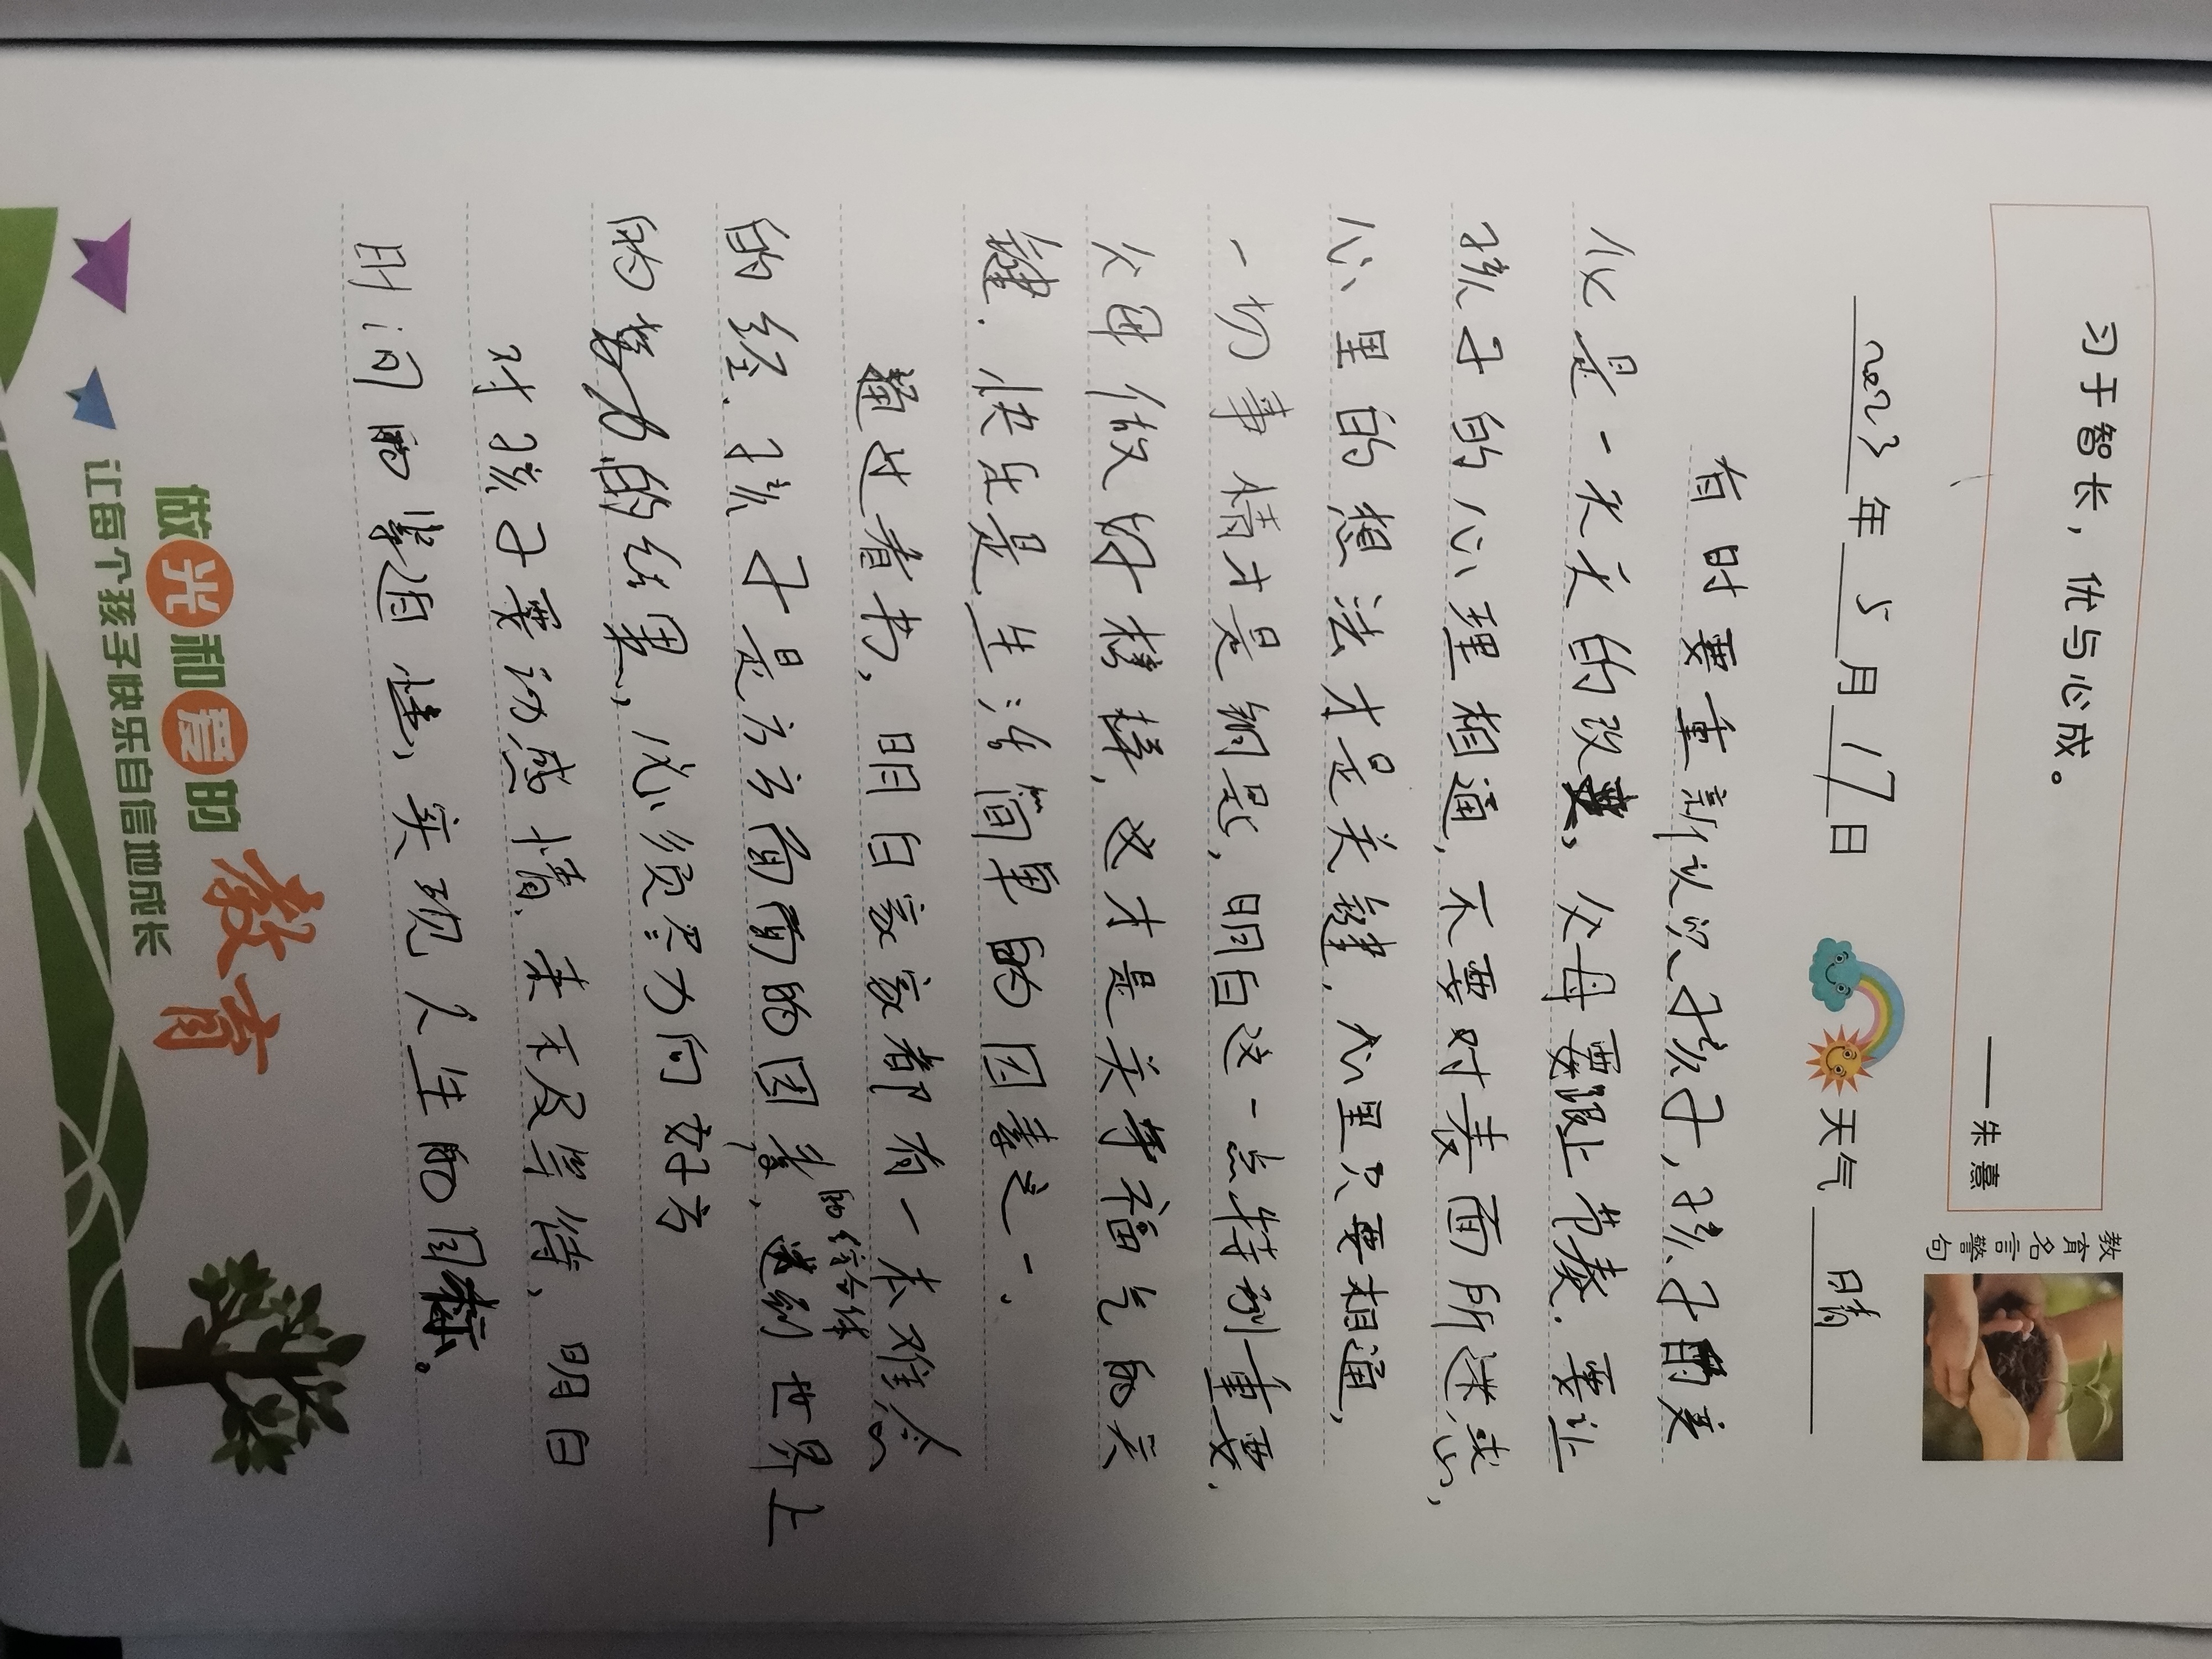 习于智长，优与心成。
——朱熹
教育名言警句
2023年5月17日 天气 晴
有时要重新认识孩子，孩子的变
化是一天天的改变，父母要跟上节奏．要让
孩子的心理相通，不要对表面所迷惑，
心里的想法才是关键，心里只要相通，
一切事情才是钥匙，明白这一点特别重要．
父母做好榜样，这才是关乎福气的关
键．快乐是生活简单的因素之一．
通过看书，明白家家都有一本难念
的经．孩子是方方面面的因素，
的综合体
达到世界上
的努力的结果，必须尽力向对方
对孩子要动感情、来不及等待、明白
时间的掌道情，实现人生的目标。
做光和爱的教育
让每个孩子快乐自信地成长